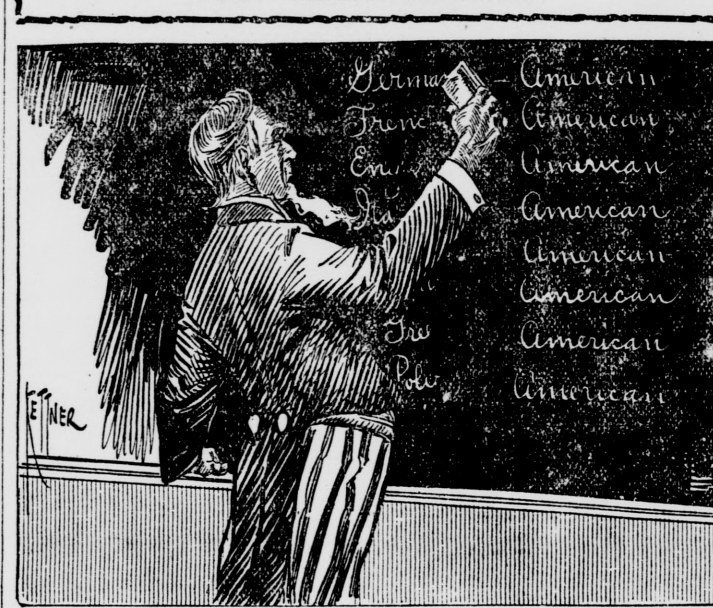 Germa - American
Frenc American
En American
Ita American
American
American
Ire American
Pole American
KETTNER